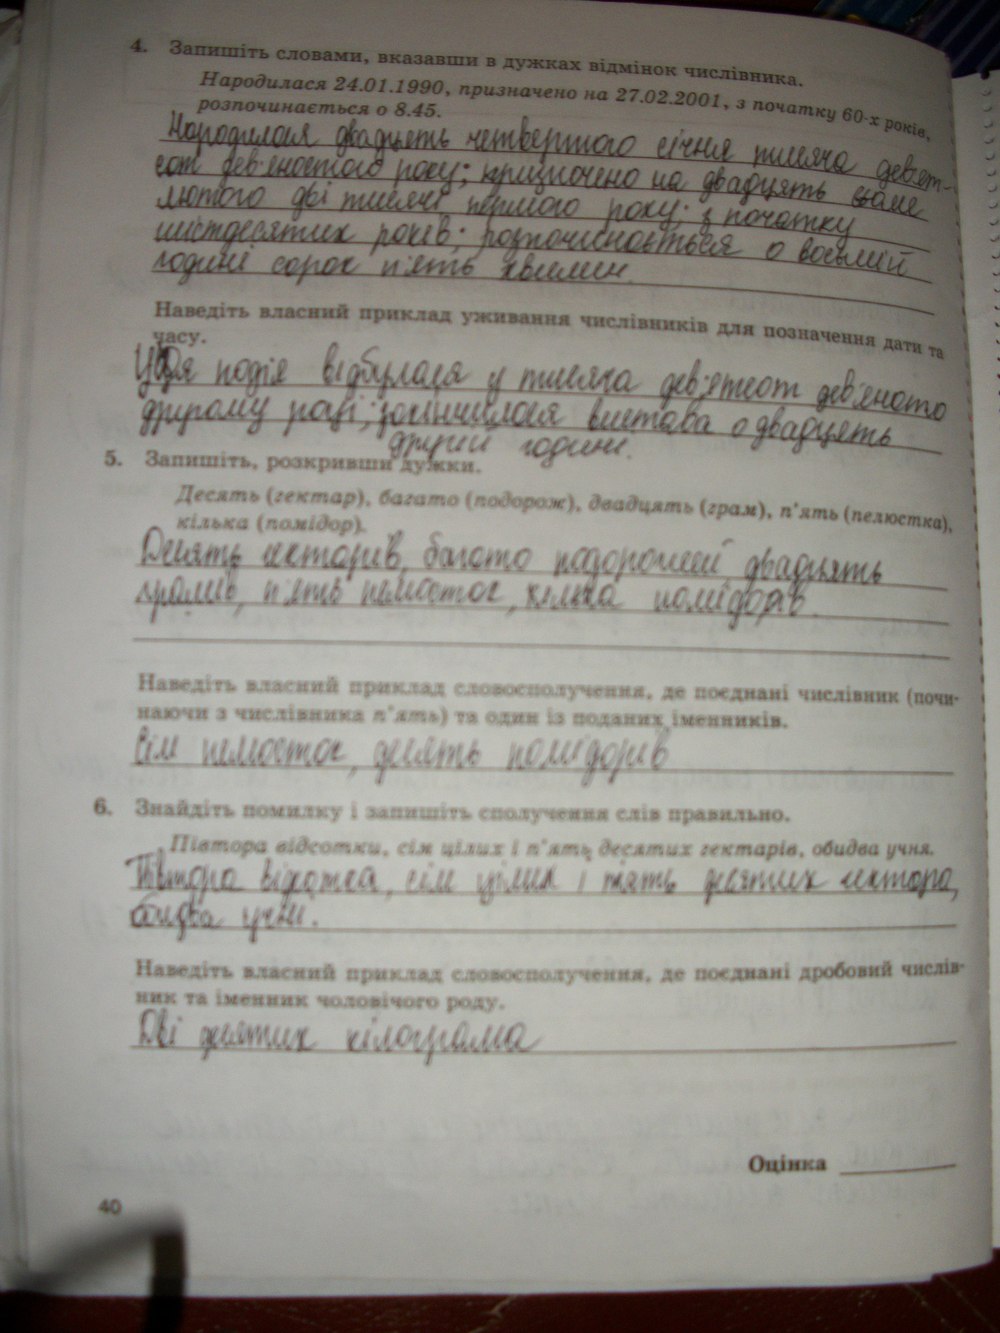 4. Запишіть словами, вказавши в дужках відмінок числівника.
Народилася 24.01.1990, призначено на 27.02.2001, з початку 60-х років,
розпочинається о 8.45.
Народилася двадцять четвертого січня тисяча дев'ят-
сот дев'яностого року; призначено на двадцять сьоме
лютого дві тисячі першого року; з початку
шістдесятих років; розпочинається о восьмій
годині сорок п'ять хвилин.
Наведіть власний приклад уживання числівників для позначення дати та
часу.
Ця подія відбулася у тисяча дев'ятсот дев'яносто
другому році; закінчилася вистава о двадцять
другій годині.
5. Запишіть, розкривши дужки.
Десять (гектар), багато (подорож), двадцять (грам), п'ять (пелюстка),
кілька (помідор).
Десять гектарів, багато подорожей, двадцять
грамів, п'ять пелюсток, кілька помідорів.
Наведіть власний приклад словосполучення, де поєднані числівник (почи-
наючи з числівника п'ять) та один із поданих іменників.
Сім пелюсток, десять помідорів
6. Знайдіть помилку і запишіть сполучення слів правильно.
Півтора відсотки, сім цілих і п'ять десятих гектарів, обидва учня.
Півтора відсотка, сім цілих і п'ять десятих гектара,
обидва учні.
Наведіть власний приклад словосполучення, де поєднані дробовий числів-
ник та іменник чоловічого роду.
Дві десятих кілограма
Оцінка
40